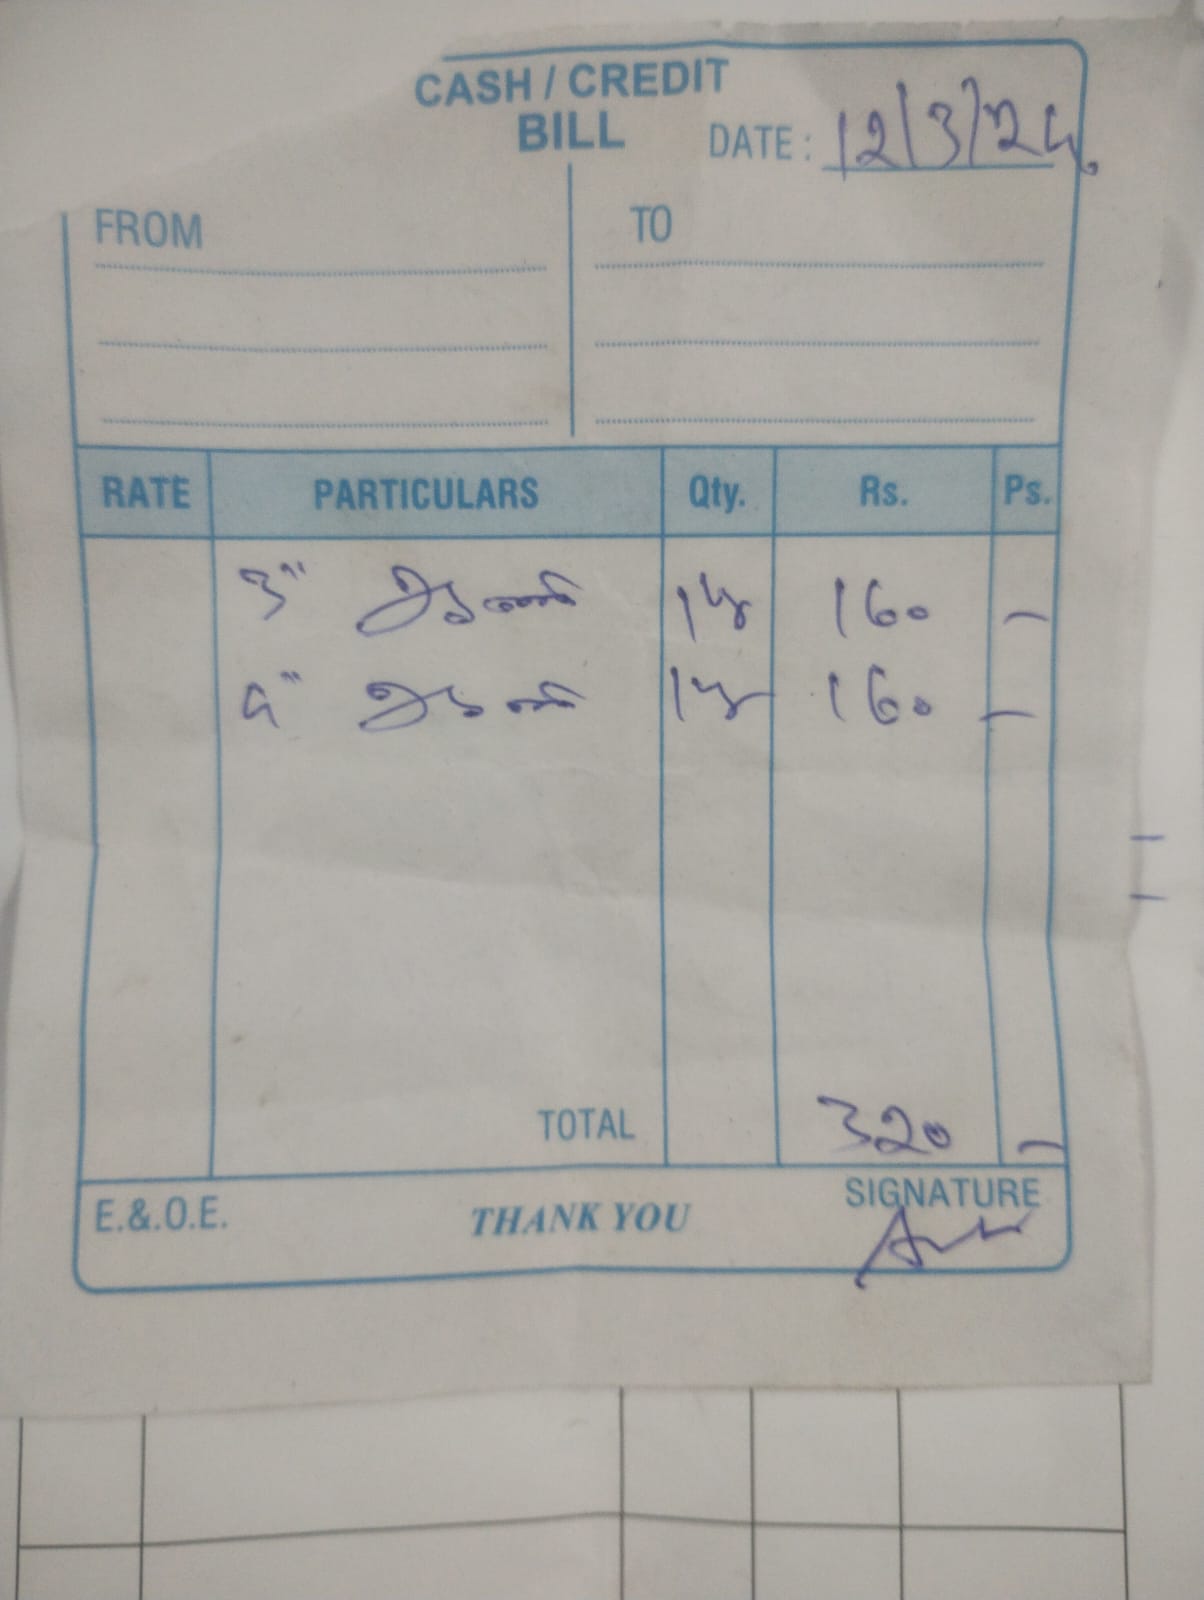 CASH / CREDIT
BILL
DATE : 12/3/24
FROM
TO
RATE PARTICULARS Qty. Rs. Ps.
3" ஆணி 1 160 –
4" ஆணி 1 160 –
TOTAL 320 –
E.&.O.E. THANK YOU SIGNATURE